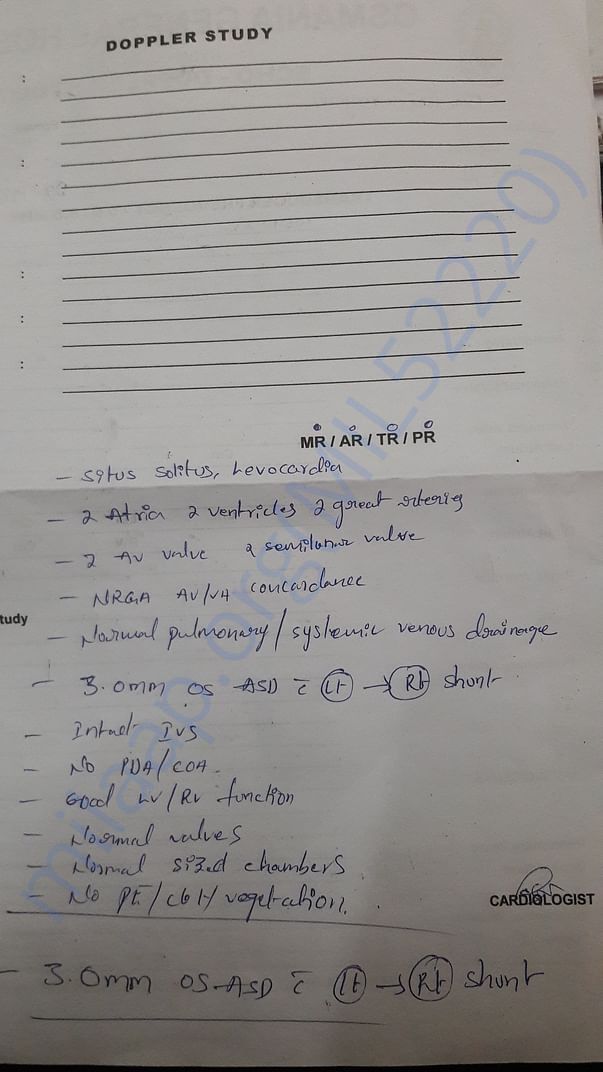 DOPPLER STUDY
:
:
:
:
:
MR / AR / TR / PR
- Situs solitus, Levocardia
- 2 Atria 2 ventricles 2 great arteries
- 2 AV valve 2 semilunar valve
- NRGA AV/VA concordance
tudy
- Normal pulmonary / systemic venous drainage
- 3.0mm OS ASD c̄ Lt → Rt shunt
- Intact IVS
- No PDA/COA
- Good LV/RV function
- Normal valves
- Normal sized chambers
- No PE/clot/vegetation.
CARDIOLOGIST
- 3.0mm OS-ASD c̄ Lt → Rt shunt
milaap.org/MIL52220)